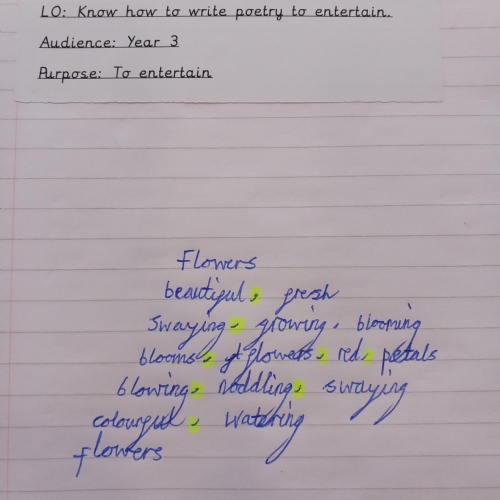 LO: Know how to write poetry to entertain.
Audience: Year 3
Purpose: To entertain
Flowers
beautiful, fresh
Swaying, growing, blooming
blooms, flowers, red, petals
blowing, noddling, swaying
colourful, Watering
flowers